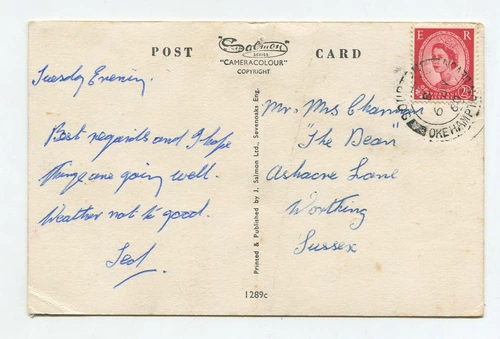 POST CARD
Salmon
SERIES
"CAMERACOLOUR"
COPYRIGHT
E R
Tuesday Evening.
Best regards and I hope
Things are going well.
Weather not to good.
Ted.
Printed & Published by J. Salmon Ltd., Sevenoaks Eng.
1289c
OKEHAMPTON
Mr. Mrs
"The Dean"
Lane
Worthing
Sussex